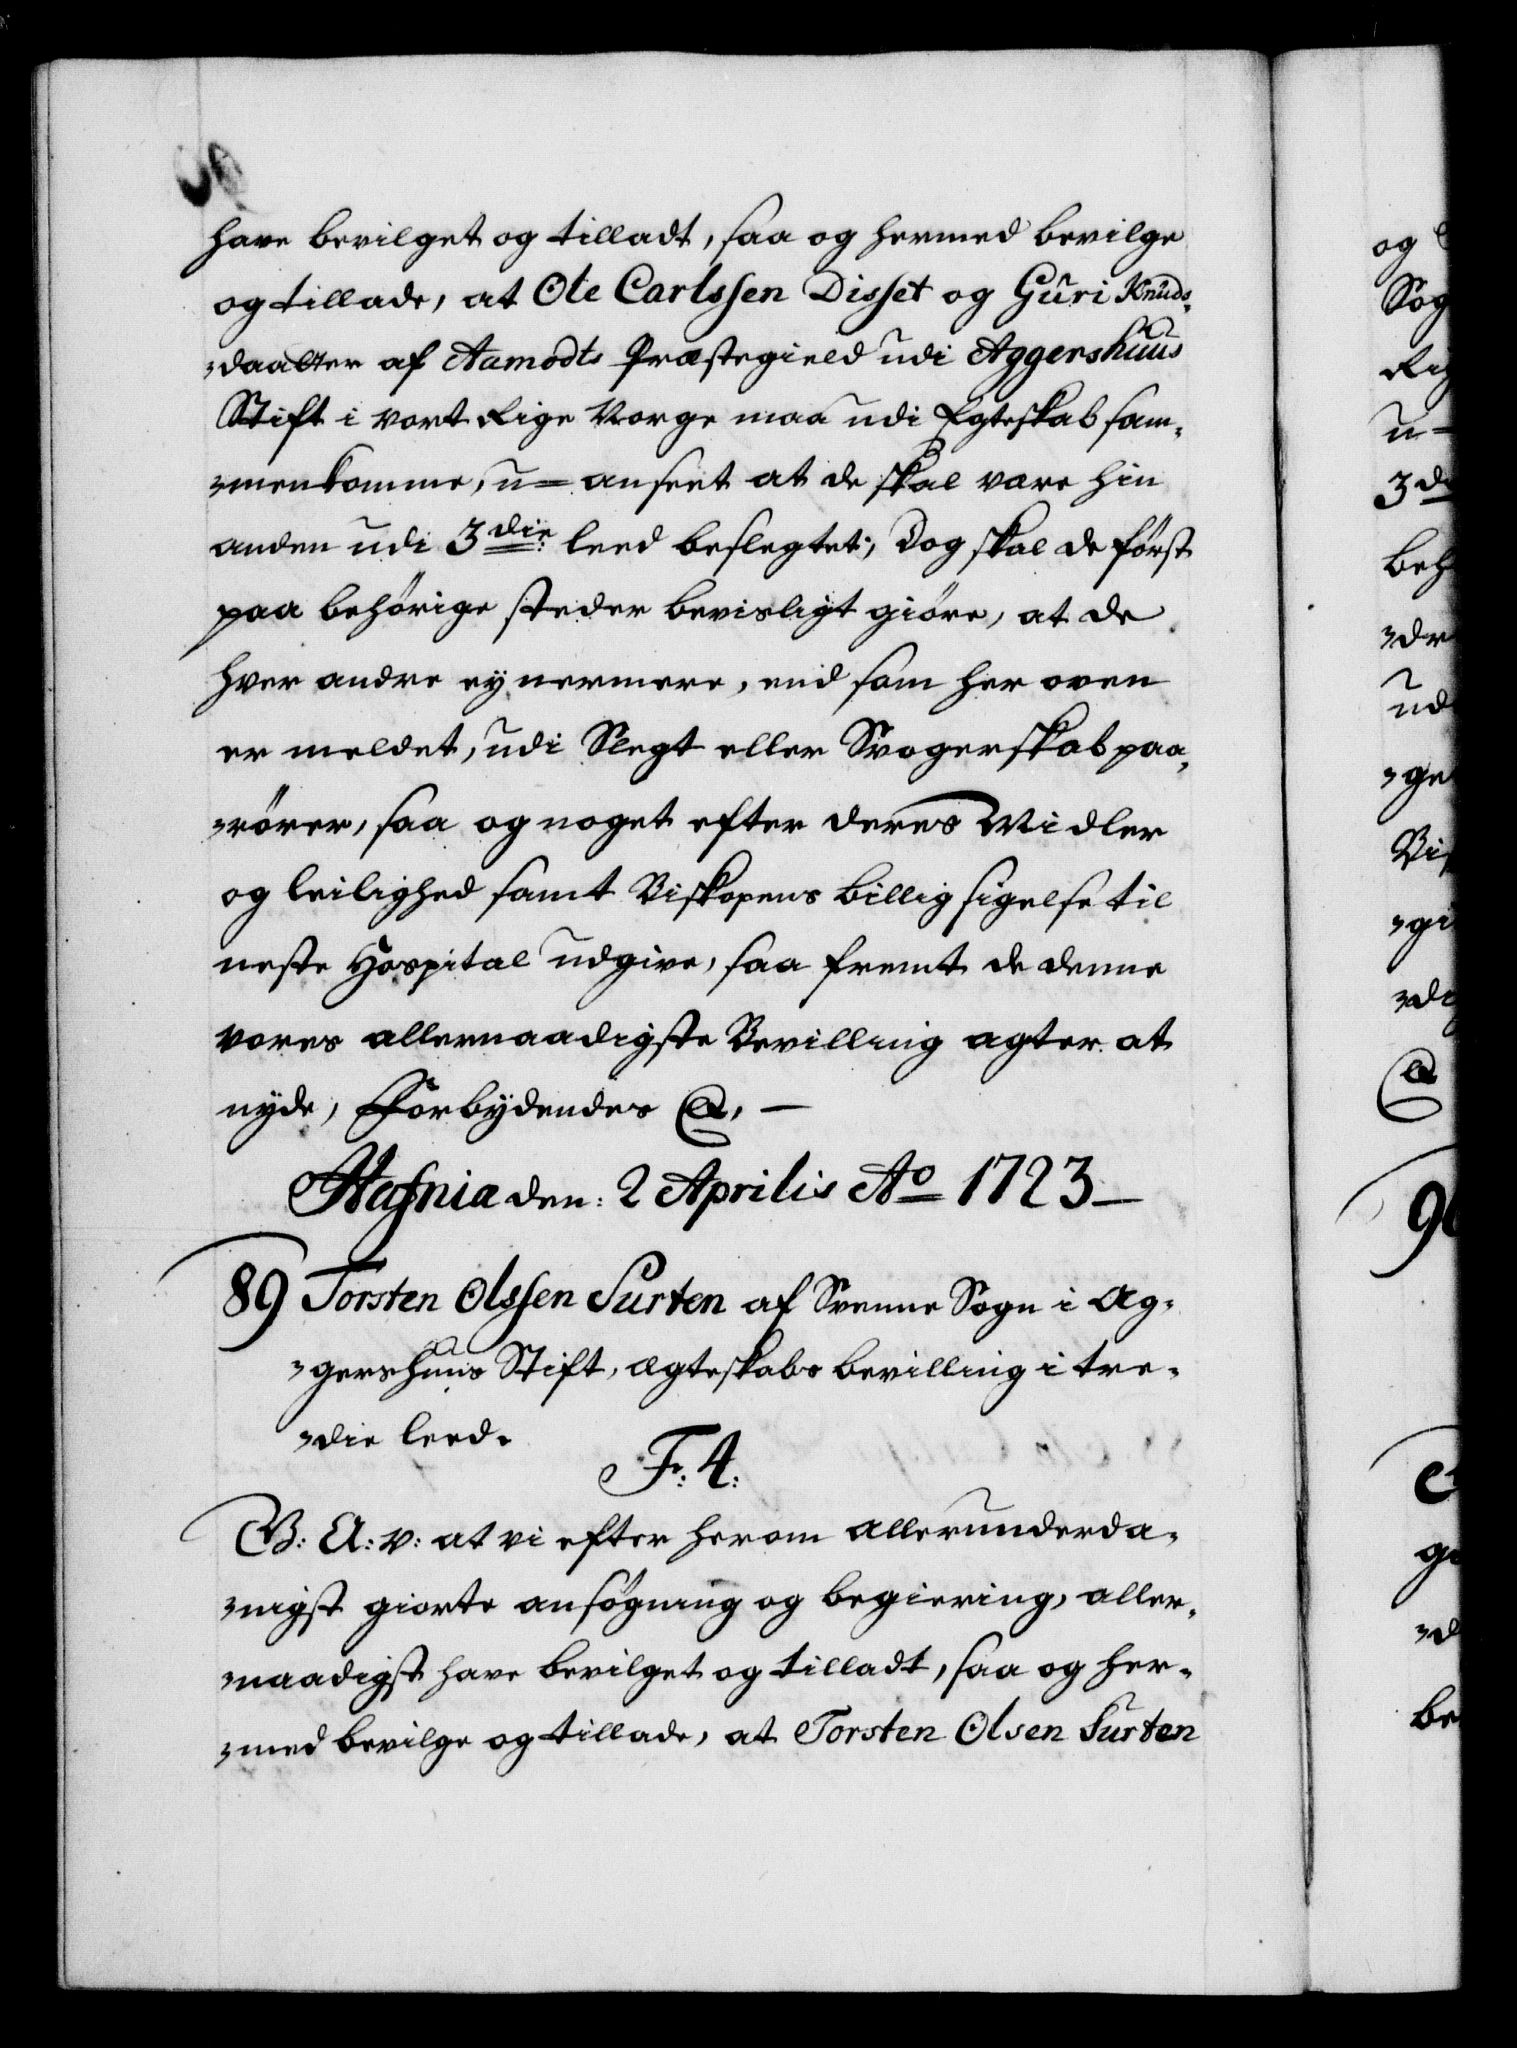 have bevilget og tilladt, saa og hermed bevilge
og tillade, at Ole Carlssen Disset og Guri Knuds-
-daatter af Aamodts Præstegield udi Aggershuus
Stift i vort Rige Norge maa udi Egteskab sam-
-menkomme, u=anseet at de skal være hin
anden udi 3die: leed beslegtet; Dog skal de först
paa behörige steder bevisligt giöre, at de
hver andre ey nermere, end som her oven
er meldet, udi Slegt eller Svogerskab paa-
-rörer, saa og noget efter deres Midler
og leilighed samt Biskopens billig sigelse til
neste Hospital udgive, saa fremt de denne
vores allernaadigste Bevilling agter at
nyde, Forbydendes &, —
Hafnia den: 2 Aprilis Ao 1723—
89 Torsten Olssen Surten af Svenne Sogn i Ag-
-gershuus Stift, ægteskabs bevilling i tre-
-die leed.
Fr: 4:
G: A: V: at vi efter herom allerunderda-
-nigst giorte ansögning og begiering, aller-
-naadigst have bevilget og tilladt, saa og her-
-med bevilge og tillade, at Torsten Olsen Surten
og
Sog
Rig
u=
3di
beh
-dr
ud
-ge
Bis
-gi
-di
&
90
ge
-d
be